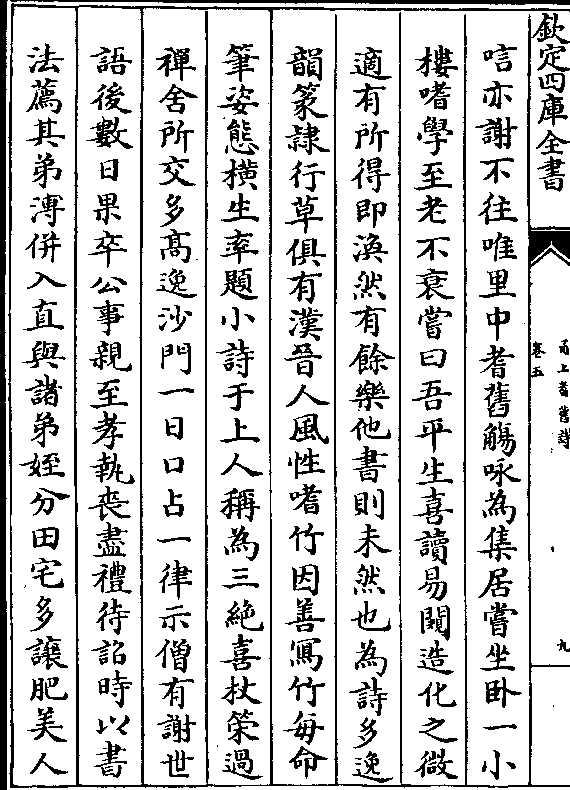 欽定四庫全書
甬上耆舊詩
卷五
九
唁亦謝不往唯里中耆舊觴咏為集居嘗坐卧一小
樓嗜學至老不衰嘗曰吾平生喜讀易闚造化之微
適有所得即渙然有餘樂他書則未然也為詩多逸
韻篆隷行草俱有漢晉人風性嗜竹因善寫竹每命
筆姿態橫生率題小詩于上人稱為三絶喜杖䇿過
禪舍所交多髙逸沙門一日口占一律示僧有謝世
語後數日果卒公事親至孝執喪盡禮待詔時以書
法薦其弟溥併入直與諸弟姪分田宅多讓肥美人